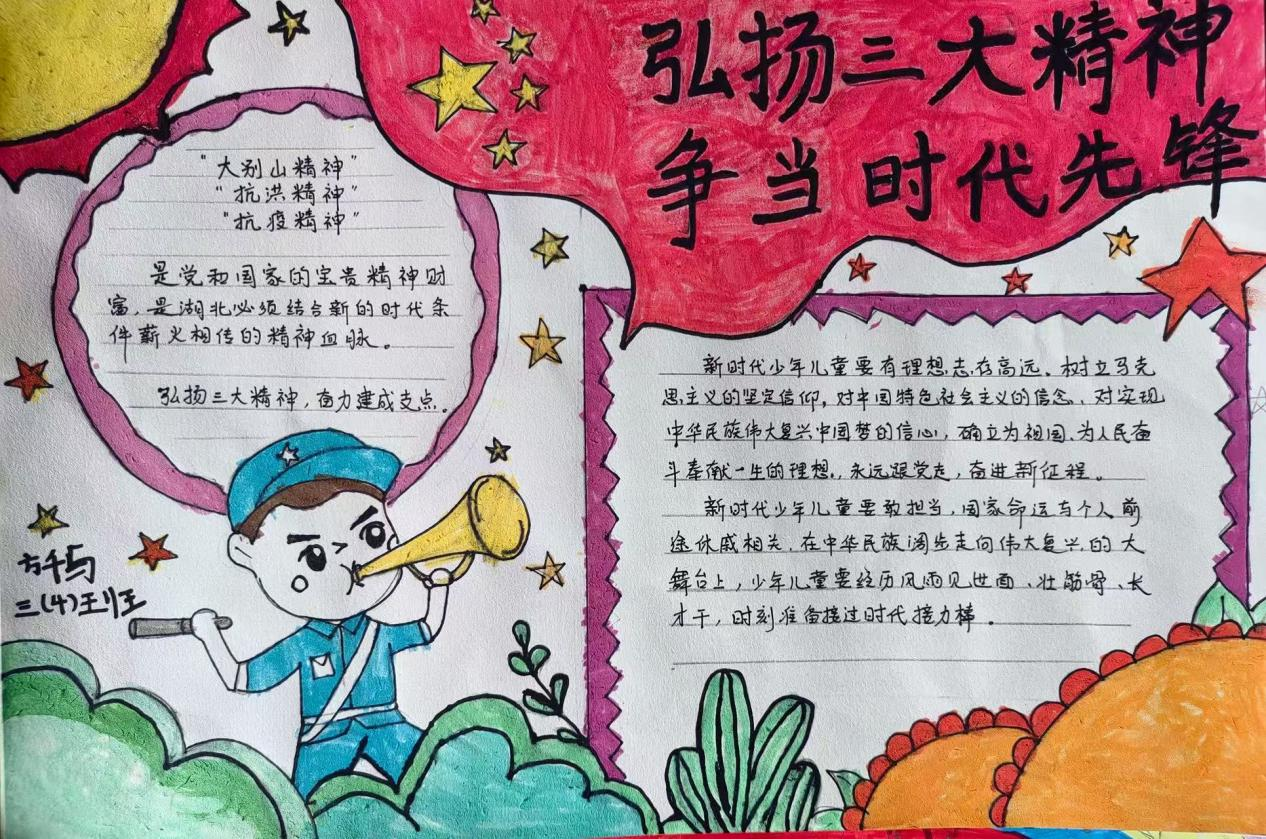 弘扬三大精神
争当时代先锋
“大别山精神”
“抗洪精神”
“抗疫精神”
是党和国家的宝贵精神财
富，是湖北必须结合新的时代条
件薪火相传的精神血脉。
弘扬三大精神，奋力建成支点。
新时代少年儿童要有理想志存高远、树立马克
思主义的坚定信仰，对中国特色社会主义的信念、对实现
中华民族伟大复兴中国梦的信心，确立为祖国、为人民奋
斗奉献一生的理想，永远跟党走，奋进新征程。
新时代少年儿童要敢担当，国家命运与个人前
途休戚相关，在中华民族阔步走向伟大复兴的大
舞台上，少年儿童要经历风雨见世面、壮筋骨、长
才干，时刻准备接过时代接力棒。
三(4)王